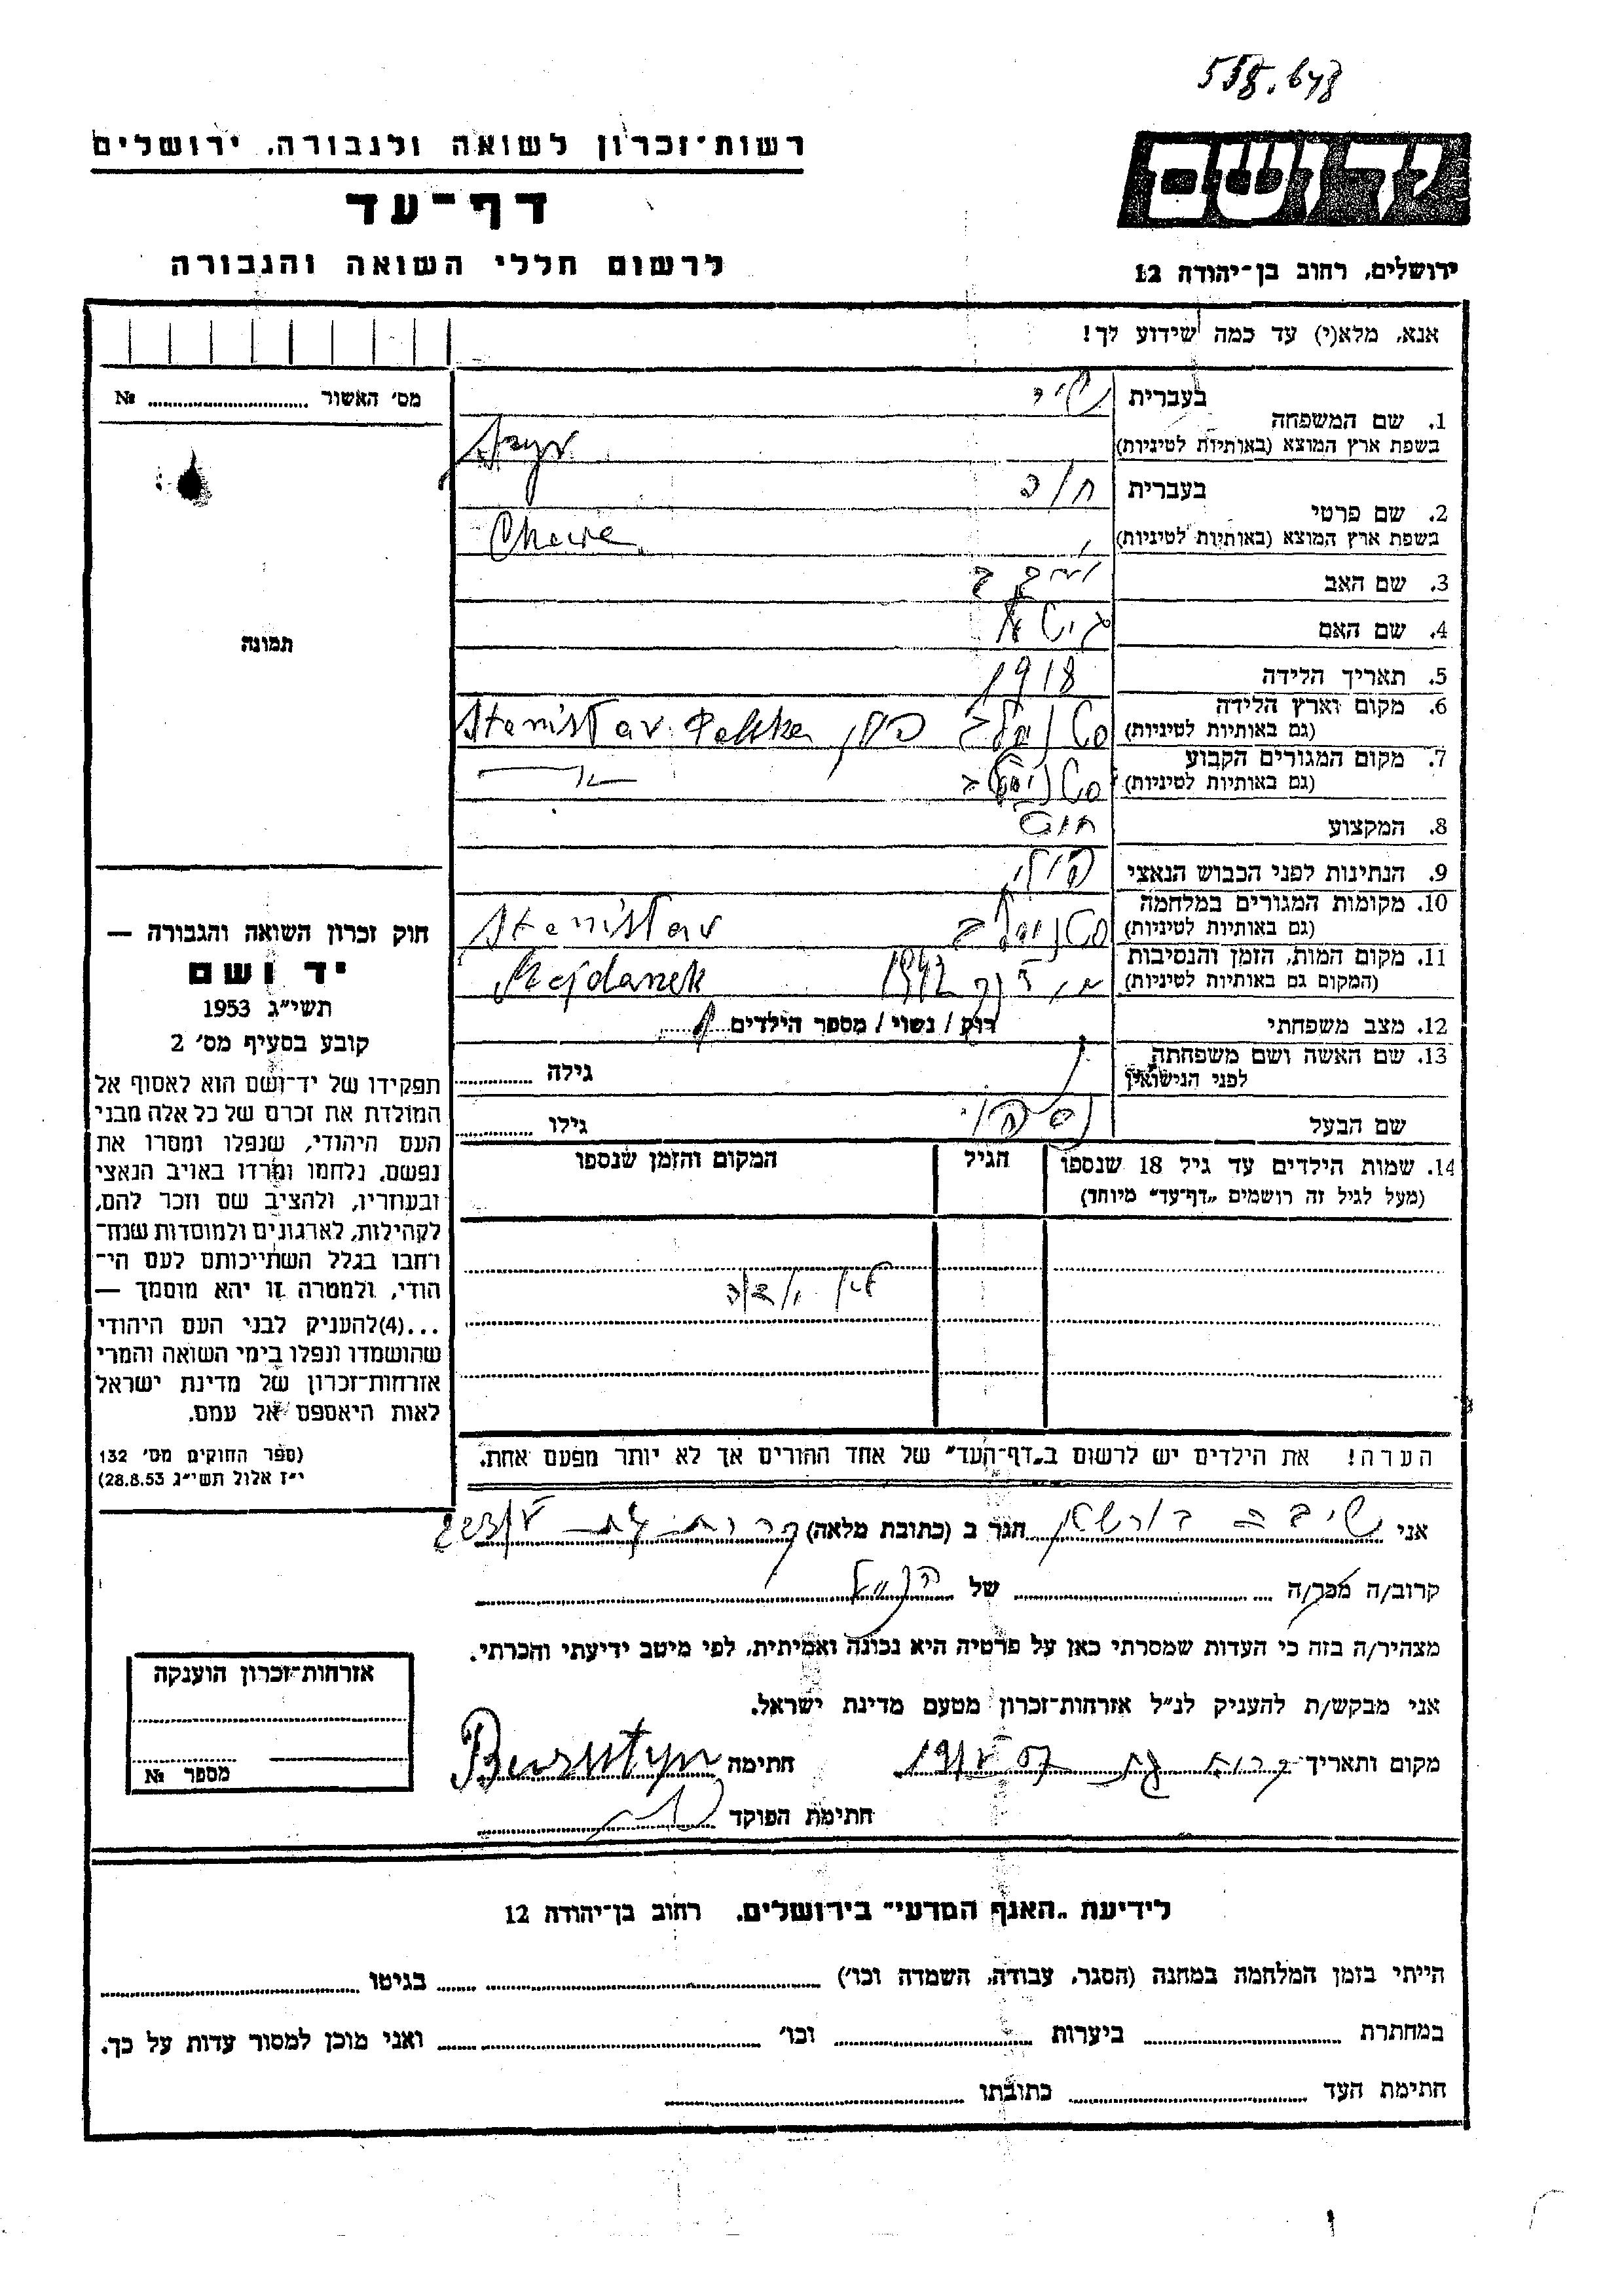 558.648
רשות־זכרון לשואה ולגבורה, ירושלים
יד ושם
דף־עד
לרשום חללי השואה והגבורה
ירושלים, רחוב בן־יהודה 12
אנא, מלא(י) עד כמה שידוע לך!
מס׳ האשור № 
1. שם המשפחה
בעברית
בשפת ארץ המוצא (באותיות לטיניות)
2. שם פרטי
בעברית
בשפת ארץ המוצא (באותיות לטיניות)
3. שם האב
4. שם האם
תמונה
5. תאריך הלידה 1918
6. מקום וארץ הלידה סטניסלב פולין Stanislav
(גם באותיות לטיניות)
7. מקום המגורים הקבוע סטניסלב
(גם באותיות לטיניות)
8. המקצוע
9. הנתינות לפני הכבוש הנאצי
10. מקומות המגורים במלחמה סטניסלב Stanislav
(גם באותיות לטיניות)
11. מקום המות, הזמן והנסיבות 1942 Majdanek
(המקום גם באותיות לטיניות)
12. מצב משפחתי רוק / נשוי / מספר הילדים
13. שם האשה ושם משפחתה גילה
לפני הנישואין
שם הבעל גילו
14. שמות הילדים עד גיל 18 שנספו הגיל המקום והזמן שנספו
(מעל לגיל זה רושמים „דף־עד״ מיוחד)
הערה! את הילדים יש לרשום ב„דף־העד״ של אחד ההורים אך לא יותר מפעם אחת.
חוק זכרון השואה והגבורה —
יד ושם
תשי״ג 1953
קובע בסעיף מס׳ 2
תפקידו של יד־ושם הוא לאסוף אל
המולדת את זכרם של כל אלה מבני
העם היהודי, שנפלו ומסרו את
נפשם, נלחמו ומרדו באויב הנאצי
ובעוזריו, ולהציב שם וזכר להם,
לקהילות, לארגונים ולמוסדות שנח־
רחבו בגלל השתייכותם לעם הי־
הודי, ולמטרה זו יהא מוסמך —
...(4)להעניק לבני העם היהודי
שהושמדו ונפלו בימי השואה והמרי
אזרחות־זכרון של מדינת ישראל
לאות היאספם אל עמם.
(ספר החוקים מס׳ 132
י״ז אלול תשי״ג 28.8.53)
אני הגר ב (כתובת מלאה)
קרוב/ה מכר/ה של
מצהיר/ה בזה כי העדות שמסרתי כאן על פרטיה היא נכונה ואמיתית, לפי מיטב ידיעתי והכרתי.
אני מבקש/ת להעניק לנ״ל אזרחות־זכרון מטעם מדינת ישראל.
מקום ותאריך קרית גת חתימה Bursztyn
חתימת הפוקד
אזרחות־זכרון הוענקה
מספר №
לידיעת „האגף המדעי״ בירושלים, רחוב בן־יהודה 12
הייתי בזמן המלחמה במחנה (הסגר, עבודה, השמדה וכו׳) בגיטו
במחתרת ביערות וכו׳ ואני מוכן למסור עדות על כך.
חתימת העד כתובתו